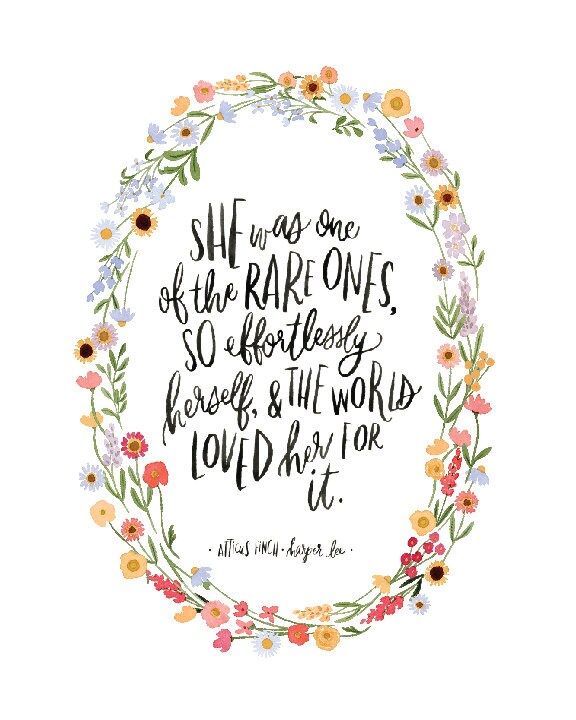 SHE was one
of the RARE ONES,
SO effortlessly
herself, & THE WORLD
LOVED her FOR
it.
· ATTICUS FINCH · harper lee ·